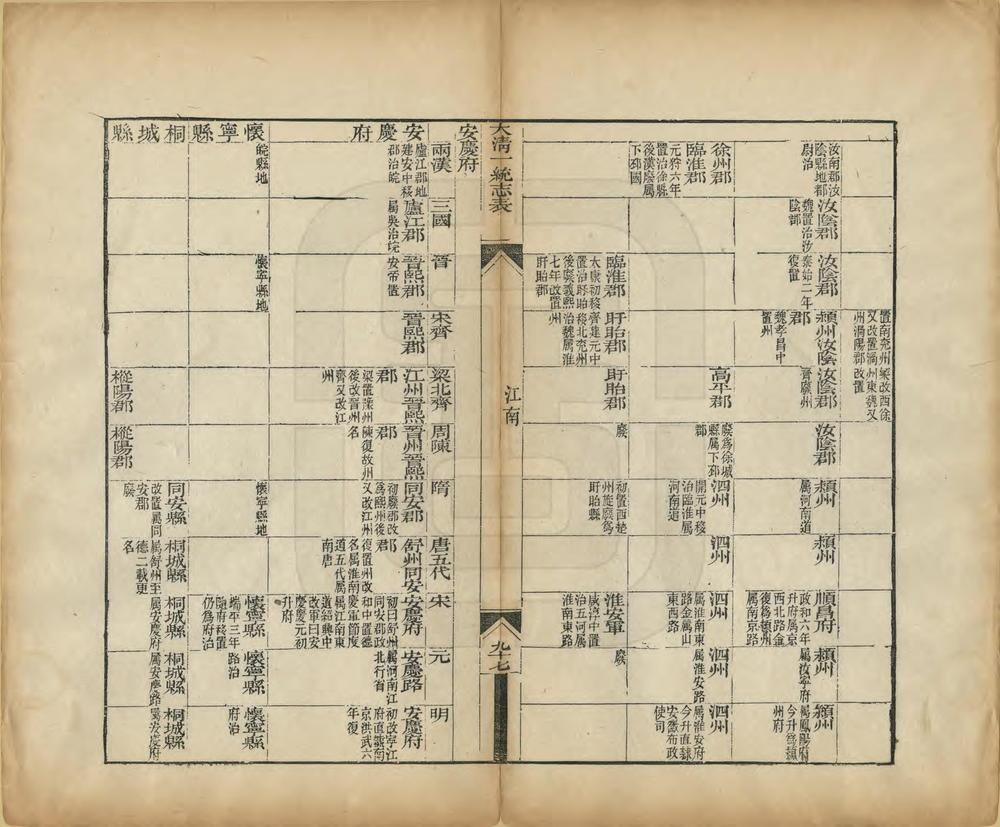 置南兗州梁改西徐
又改置渦州東魏又
州渦陽郡改置
汝南郡汝
陰縣地都
尉治
汝陰郡
魏置治汝
陰郡
汝陰郡
泰始二年
復置
潁州汝陰
郡
魏孝昌中
置州
汝陰郡
齊廢州
汝陰郡
潁州
屬河南道
潁州
順昌府
政和六年
升府屬京
西北路金
復為潁州
屬南京路
潁州
屬汝寧府
潁州
屬鳳陽府
今升為潁
州府
徐州郡
高平郡
廢為徐城
縣屬下邳
郡
泗州
開元中移
治臨淮屬
河南道
泗州
泗州
屬淮南東
路金屬山
東西路
泗州
屬淮安路
泗州
屬淮安府
今升直隸
安徽布政
使司
臨淮郡
元狩六年
置治徐縣
後漢廢屬
下邳國
臨淮郡
太康初移
置治盱眙
後廢義熙
七年改置
盱眙郡
盱眙郡
齊建元中
移北兗州
治魏屬淮
州
盱眙郡
廢
初置西楚
州旋廢為
盱眙縣
淮安軍
咸淳中置
治五河屬
淮南東路
廢
大清一統志表
江南
九十七
安慶府
兩漢
三國
晉
宋齊
梁北齊
周陳
隋
唐五代
宋
元
明
安慶府
廬江郡地
建安中移
郡治皖
廬江郡
屬吳治皖
晉熙郡
安帝置
晉熙郡
江州晉熙
郡
梁置豫州
後改晉州
齊又改江
州
晉州晉熙
郡
陳復故州
名
同安郡
初廢郡改
為熙州後
又改江州
舒州同安
郡
復置州改
名屬淮南
道五代屬
南唐
安慶府
初曰舒州
同安郡政
和中置德
慶軍節度
屬江南東
道紹興中
改軍曰安
慶慶元初
升府
安慶路
屬河南江
北行省
安慶府
初改寧江
府直隸南
京洪武六
年復
懷寧縣
皖縣地
懷寧縣地
懷寧縣地
懷寧縣
端平三年
隨府移置
仍為府治
懷寧縣
路治
懷寧縣
府治
桐城縣
樅陽郡
樅陽郡
同安縣
改置屬同
安郡
廢
桐城縣
屬舒州至
德二載更
名
桐城縣
屬安慶府
桐城縣
屬安慶路
桐城縣
屬安慶府